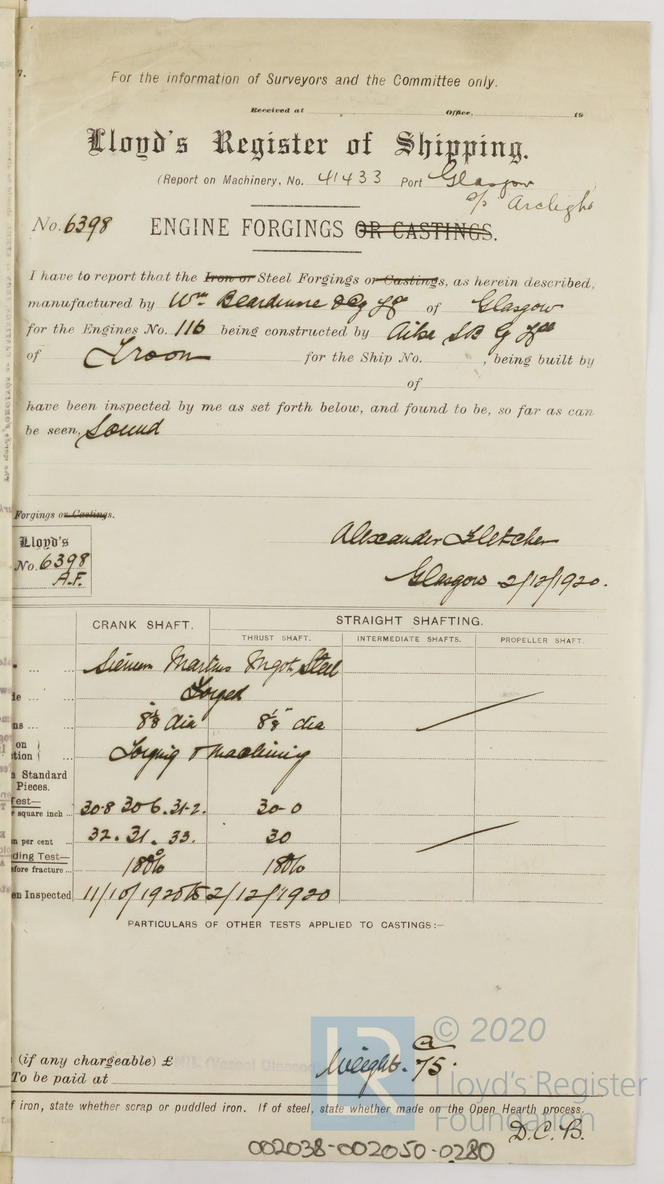 7.
For the information of Surveyors and the Committee only.
Received at Office, 19
Lloyd's Register of Shipping.
(Report on Machinery, No. 41433 Port Glasgow )
a/s Arclight
No. 6398 ENGINE FORGINGS OR CASTINGS.
I have to report that the Iron or Steel Forgings or Castings, as herein described,
manufactured by Wm Beardmore & Co Ld of Glasgow
for the Engines No. 116 being constructed by Ailsa SB Co Ld
of Troon for the Ship No. , being built by
of
have been inspected by me as set forth below, and found to be, so far as can
be seen, Sound
Forgings or Castings.
Alexander Fletcher
Lloyd's
No. 6398
A.F.
Glasgow 2/12/1920.
CRANK SHAFT. STRAIGHT SHAFTING.
THRUST SHAFT. INTERMEDIATE SHAFTS. PROPELLER SHAFT.
Siemens Martins Ingot Steel
Forged
8⅛" dia 8⅛" dia
on
tion Forging & Machining
Standard
Pieces.
Test—
square inch 30.8 30.6. 31.2. 30.0
per cent 32. 31. 33. 30
ding Test—
fore fracture 180° 180°
en Inspected 11/10/1920 to 2/12/1920
PARTICULARS OF OTHER TESTS APPLIED TO CASTINGS:—
© 2020
(if any chargeable) £ Weight. 75.
To be paid at
Lloyd's Register
f iron, state whether scrap or puddled iron. If of steel, state whether made on the Open Hearth process,
Foundation
D.C.B.
002038-002050-0280